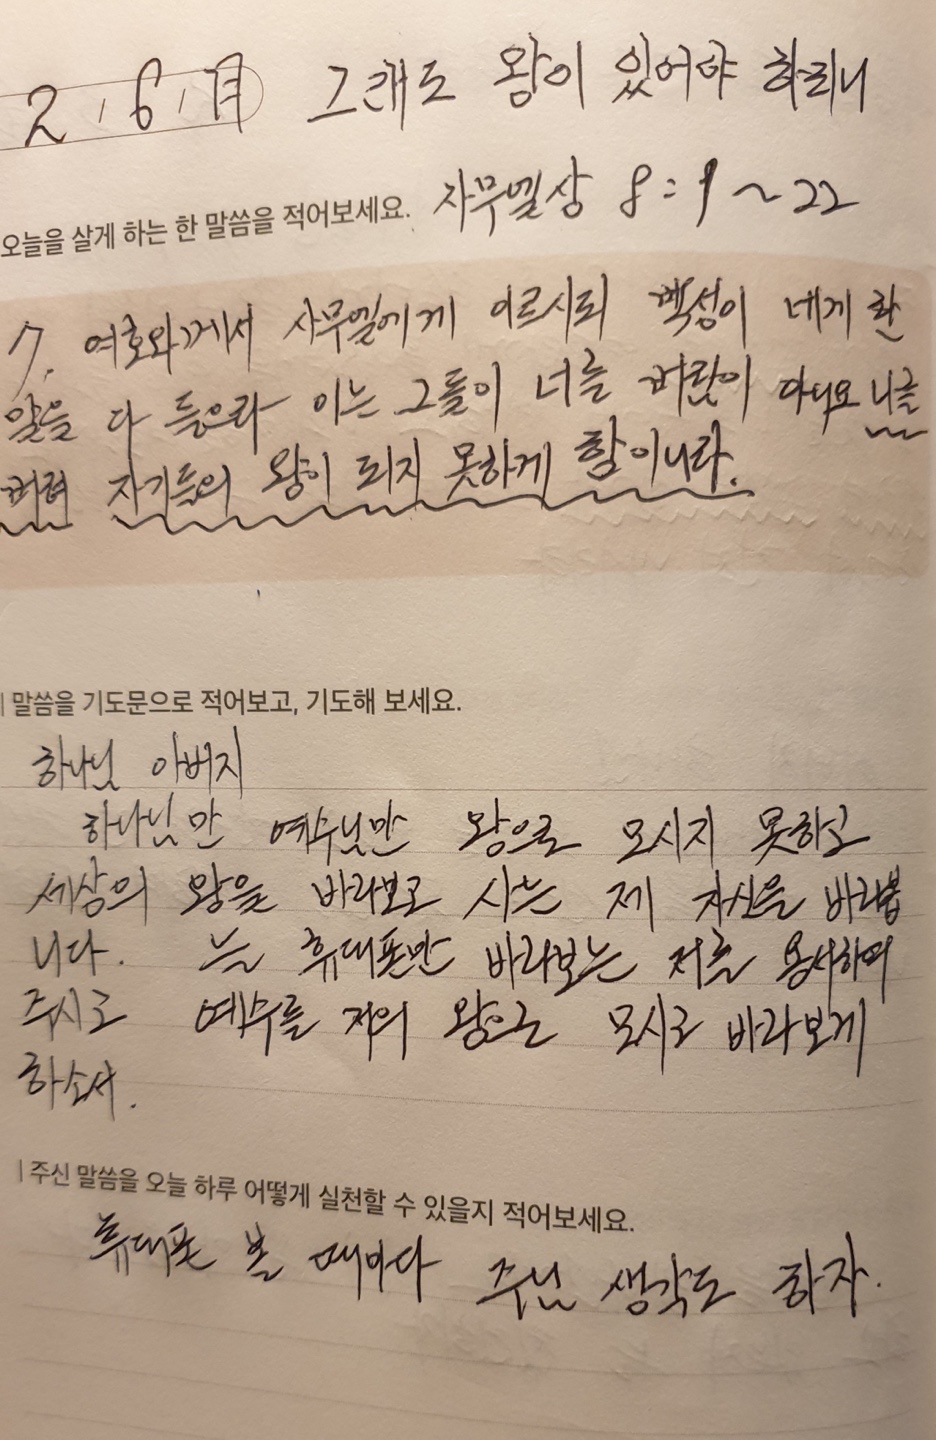 2, 6, 月 그래도 왕이 있어야 하리니
오늘을 살게 하는 한 말씀을 적어보세요. 사무엘상 8:1~22
7. 여호와께서 사무엘에게 이르시되 백성이 네게 한
말을 다 들으라 이는 그들이 너를 버림이 아니요 나를
버려 자기들의 왕이 되지 못하게 함이니라.
말씀을 기도문으로 적어보고, 기도해 보세요.
하나님 아버지
하나님만 예수님만 왕으로 모시지 못하고
세상의 왕을 바라보고 사는 제 자신을 바라봅
니다. 늘 휴대폰만 바라보는 저를 용서하여
주시고 예수를 저의 왕으로 모시고 바라보게
하소서.
| 주신 말씀을 오늘 하루 어떻게 실천할 수 있을지 적어보세요.
휴대폰 볼 때마다 주님 생각도 하자.